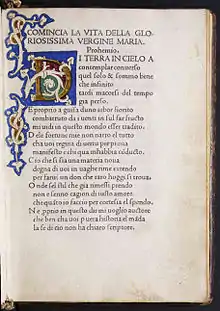 COMINCIA LA VITA DELLA GLO
RIOSISSIMA VERGINE MARIA.
Prohemio.
I TERRA IN CIELO A
contemplar converso
quel solo & sommo bene
che infinito
tarsi macesi del tempo
gia perso.
E proprio a guisa d uno arbor fiorito
combattuto da i venti in sul far fructo
mi vidi in questo mondo esser tradito.
D ele fortune mie non narro el tutto
cha uoi regina di uertu per piova
manifesto e chi qua m habbia cōducto.
C io che si sia una materia noua
dogna di uoi in uagherime extendo
per farvi un don che raro hoggi si trova.
O nde sel stil che gia himessi prendo
non e senno cagion di iusto amore
chequato io faccio per cortesia el spendo.
N e ppio in questo de mi uoglio auctore
che ben cha uoi p uera historia el māda
la se di cio non ha chiaro scriptore.